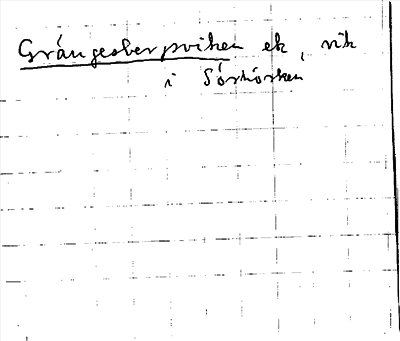 Grängesbergsviken ek, vik
i Sörhörken